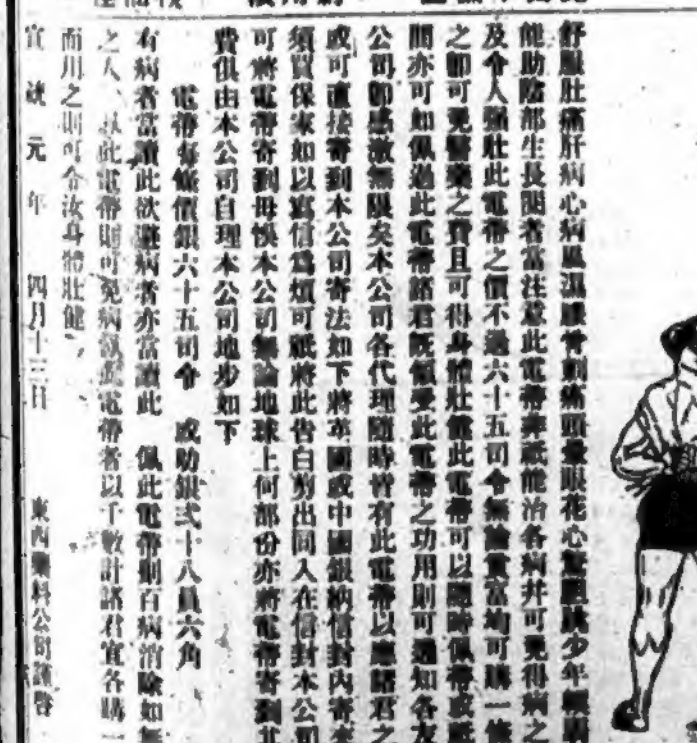 舒服肚痛肝病心病風濕腰骨刺痛頭暈眼花心驚胆跳少年
能助陰部生長閱者當注意此電帶非祗能治各病并可免得病之
及令人強壯此電帶之價不過六十五司令無論貧富均可購一條
之即可免醫藥之費且可得身體壯健此電帶可以隨時佩帶或
間亦可如佩過此電帶諸君既領受此電帶之功用則可通知各友
公司即感激無限矣本公司各代理隨時皆有此電帶以應諸君之
或可直接寄到本公司寄法如下將英國或中國銀納信封內寄來
須買保家如以寫信為煩可祗將此告白剪出同入在信封本公司
可將電帶寄到毋悞本公司無論地球上何部份亦將電帶寄到其
費俱由本公司自理本公司地步如下
電帶每條價銀六十五司令 或助銀弍十八員六角
有病者當讀此欲避病者亦當讀此 佩此電帶則百病消除如無
之人以此電帶則可免病佩此電帶者以千數計諸君宜各購一
而用之則可令汝身體壯健
宣統元年 四月十三日 東西藥料公司謹啓